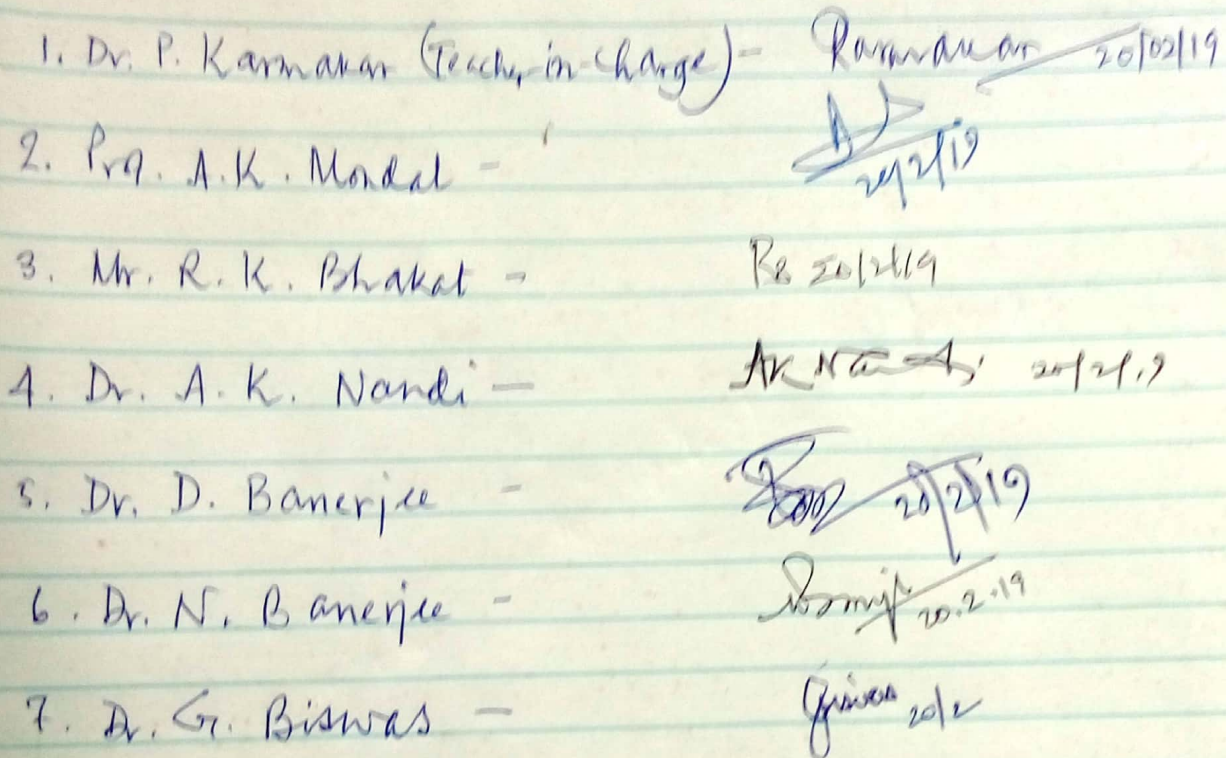 1. Dr. P. Karmakar (Teacher-in-Charge) - Karmakar 20/02/19
2. Prof. A.K. Mondal - 20/2/19
3. Mr. R. K. Bhakat - RB 20/2/19
4. Dr. A. K. Nandi - AK Nandi 20/2/19
5. Dr. D. Banerjee - 20/2/19
6. Dr. N. Banerjee - 20.2.19
7. Dr. G. Biswas - 20/2